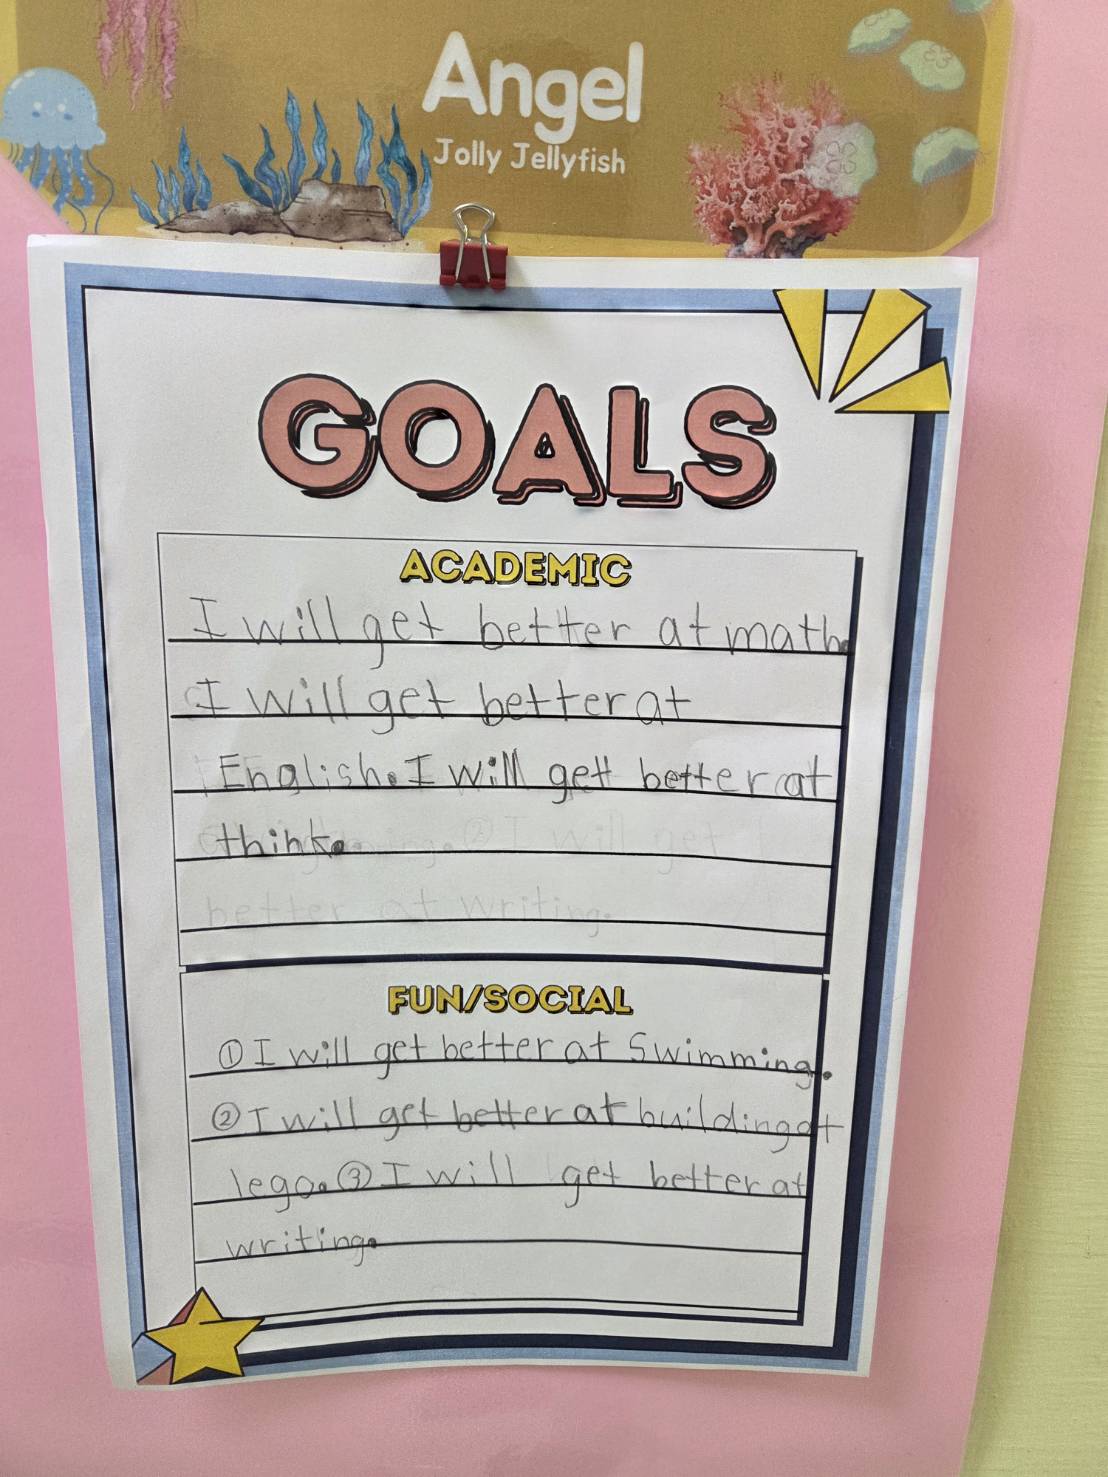 Angel
Jolly Jellyfish
GOALS
ACADEMIC
I will get better at math.
I will get better at
English. I will get better at
think.
better at writing.
FUN/SOCIAL
① I will get better at Swimming.
② I will get better at building at
lego. ③ I will get better at
writing.